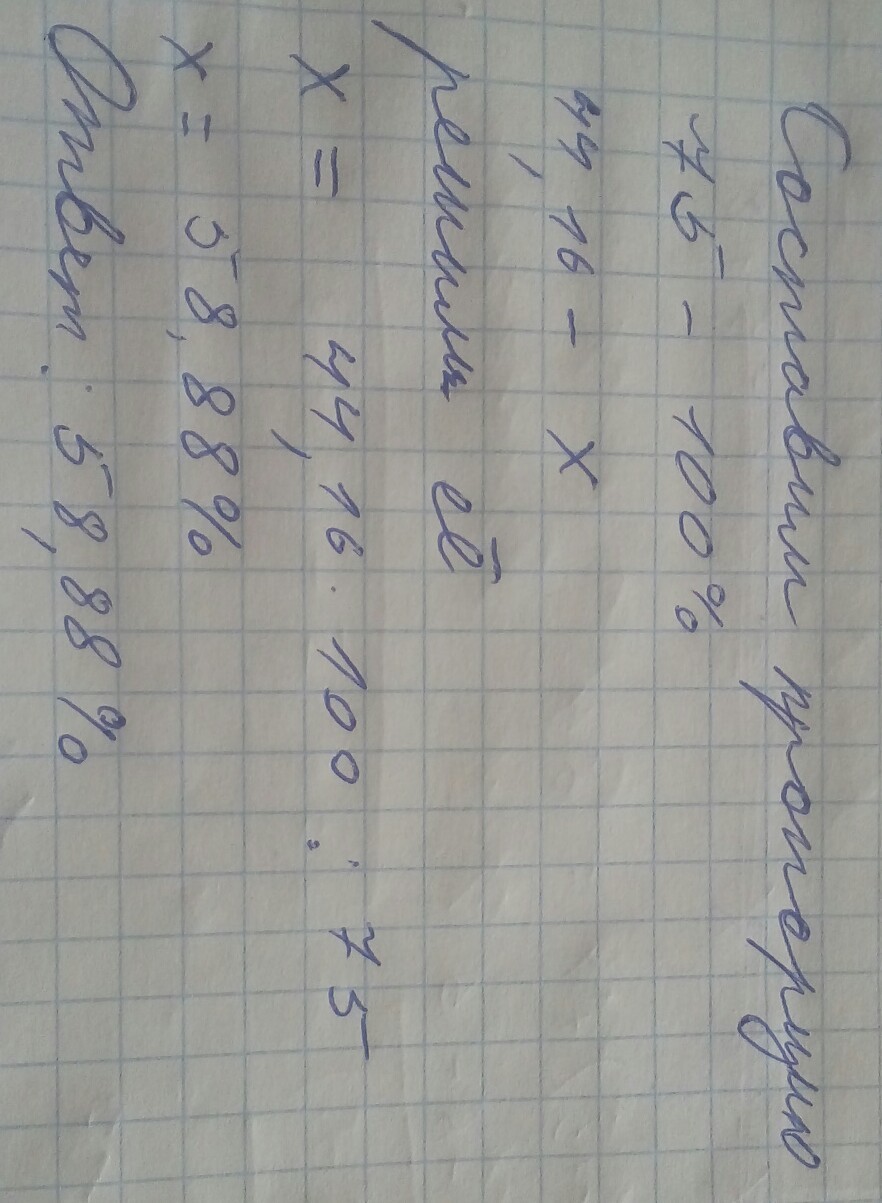 Составим пропорцию
75 - 100%
44,16 - x
решим её
x = 44,16 · 100 : 75
x = 58,88%
Ответ: 58,88%